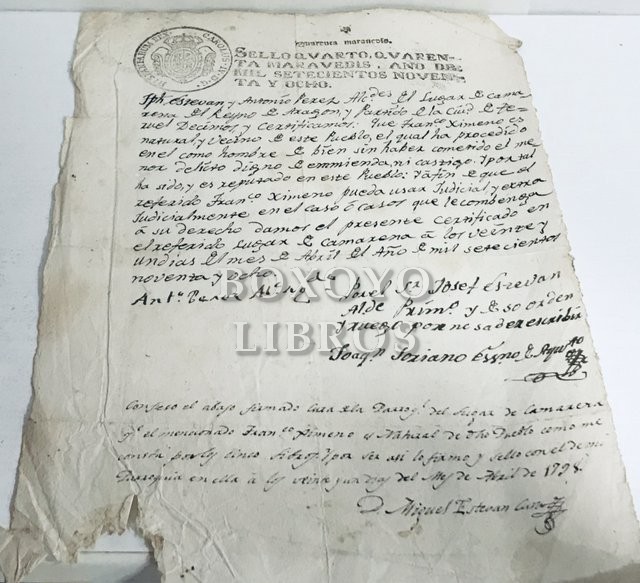 quarenta maravedis.
SELLO QVARTO, QVAREN-
TA MARAVEDIS, AÑO DE
MIL SETECIENTOS NOVEN-
TA Y OCHO.
Jph. Estevan y Antonio Perez Aldes. El Lugar de Cama
rena El Reyno de Aragon, y Partido de la Ciud. de Te-
ruel Decimos, y Certificamos: que Franco. Ximeno es
natural y Vecino de este Pueblo, el qual ha procedido
en el como hombre de bien sin haber cometido el me
nor delito digno de emmienda, ni castigo: Y por tal
ha sido, y es reputado en este Pueblo: Y a fin de que el
referido Franco. Ximeno pueda usar Judicial y extra
Judicialmente en el caso ó casos que le combenga
á su derecho damos el presente Certificado en
el referido Lugar de Camarena á los veinte y
un dias del mes de Abril del Año de mil setecientos
noventa y ocho
Anto. Perez Alde.
Por el Sr. Josef Estevan
Alde. Primo. y de su orden
y ruego por no saber escribir
Joaqn. Soriano Essno. de Ayunto
el abajo firmado Cura de la Parroql. del Lugar de Camarena
qe. el mencionado Franco. Ximeno es Natural de dho Pueblo como me
consta por los cinco Libros y por ser asi lo firmo y sello con el de mi
Parroquia en ella á los veinte y un dias del Mes de Abril de 1798.
D. Miguel Estevan Cura
BOXOYO
LIBROS